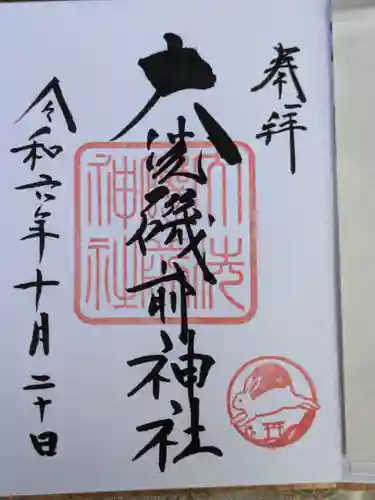 奉拝
大洗磯前神社
令和六年十月二十日
大洗
磯前
神社